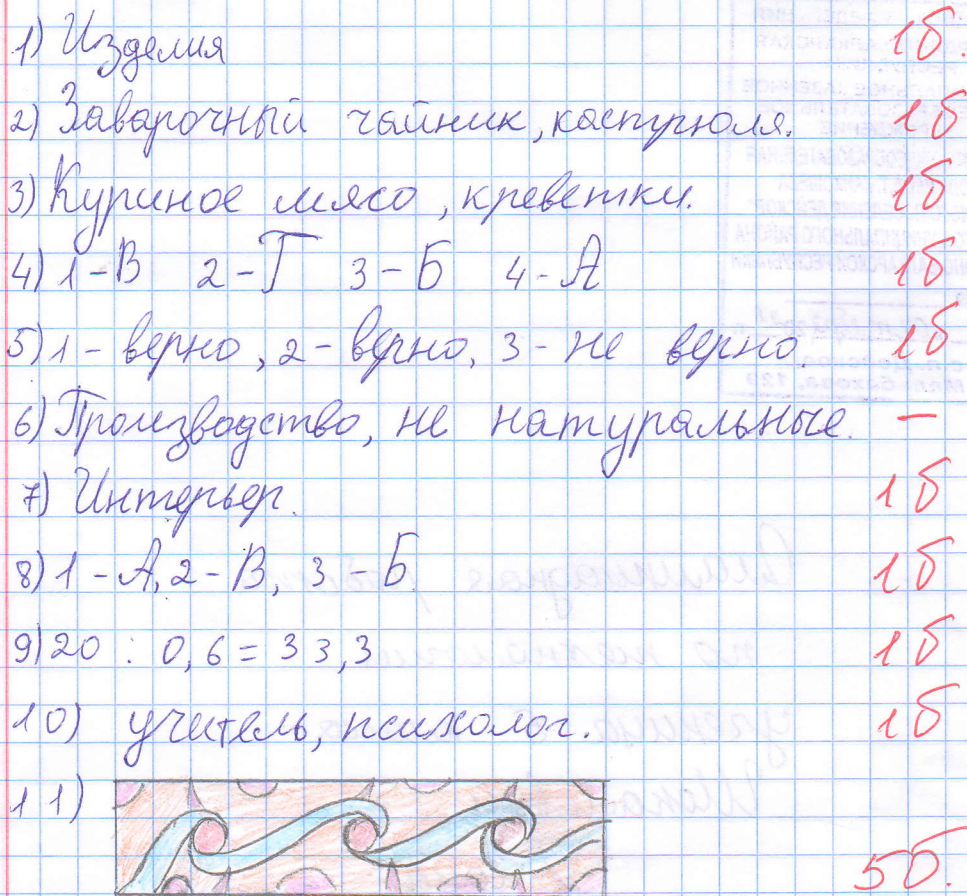 1) Изделия 1б.
2) Заварочный чайник, кастрюля. 1б
3) Куриное мясо, креветки. 1б
4) 1-В 2-Г 3-Б 4-А 1б
5) 1- верно, 2- верно, 3- не верно. 1б
6) Производство, не натуральные. —
7) Интерьер. 1б
8) 1-А, 2-В, 3-Б 1б
9) 20 : 0,6 = 33,3 1б
10) учитель, психолог. 1б
11) 5б.